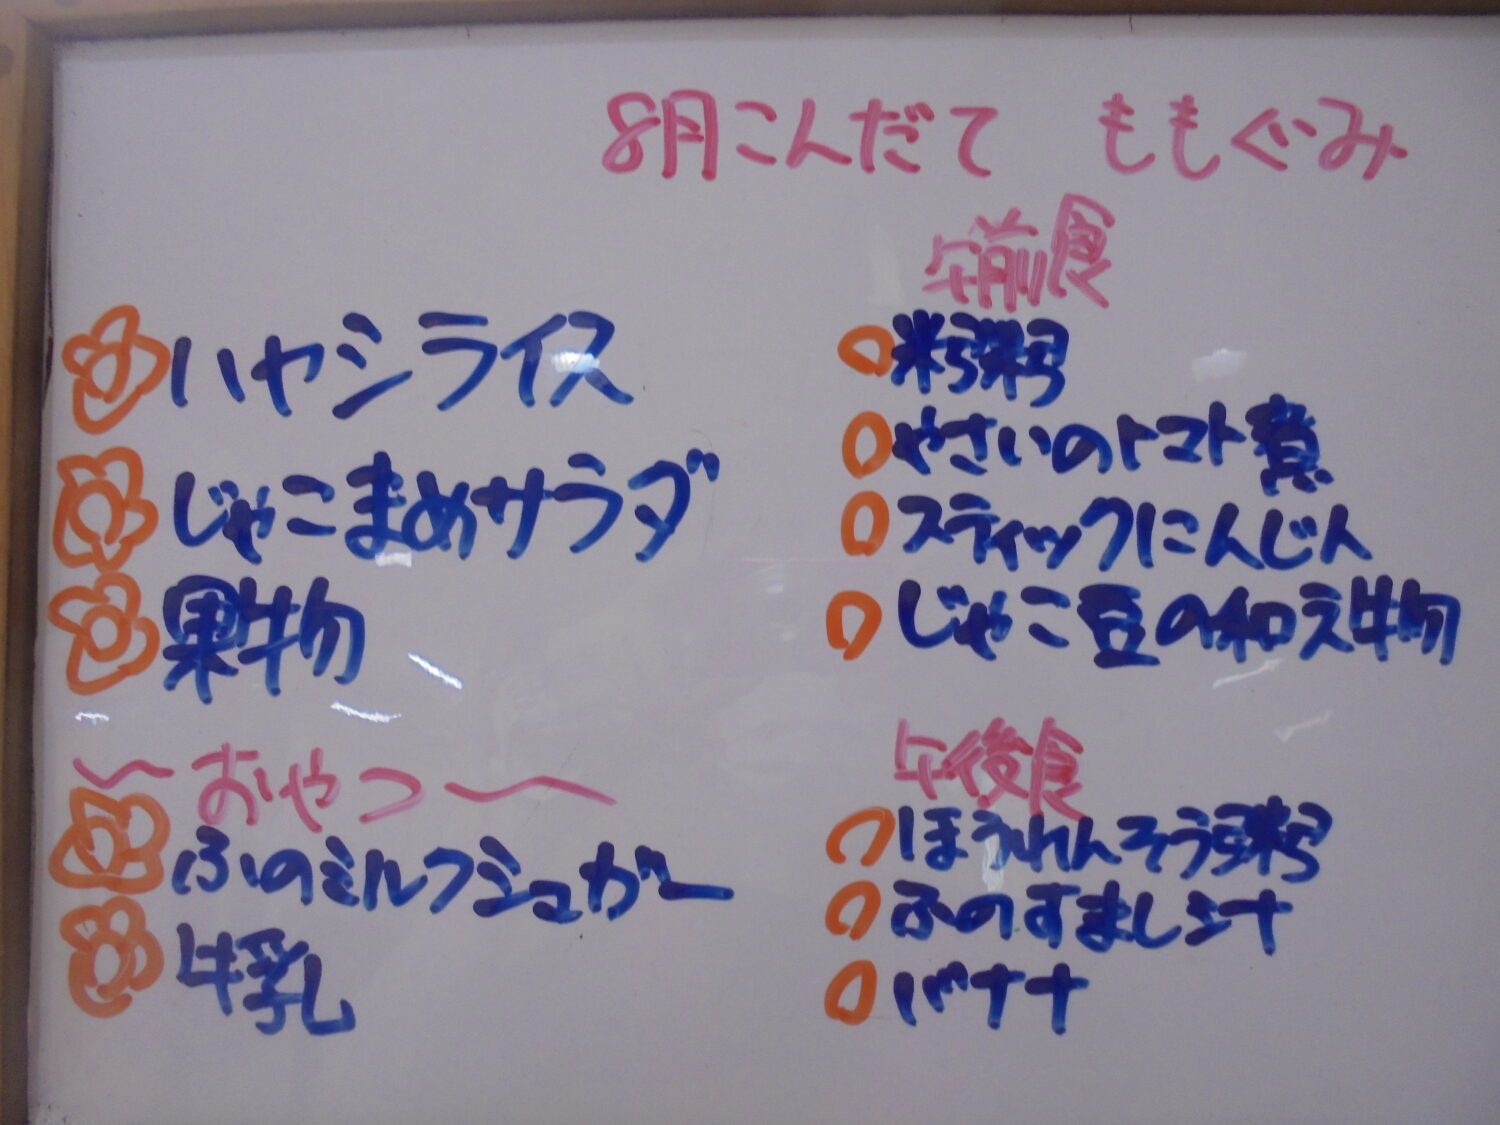 8月こんだて ももぐみ
ハヤシライス
じゃこまめサラダ
果物
〜おやつ〜
ふのミルクシュガー
牛乳
午前食
粥
やさいのトマト煮
スティックにんじん
じゃこ豆の和え物
午後食
ほうれんそう粥
ふのすまし汁
バナナ